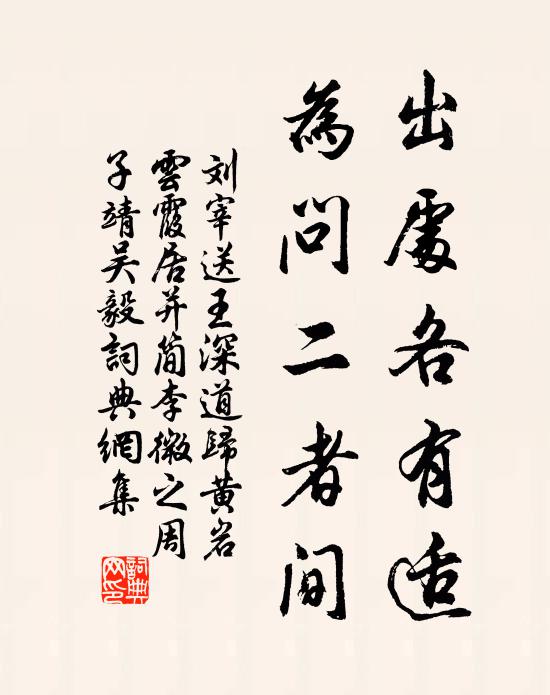 出處各有适
為問二者间
刘宰送王深道歸黄岩
雲霞居并簡李微之周
子靖吴毅詞典網集
詞典网印